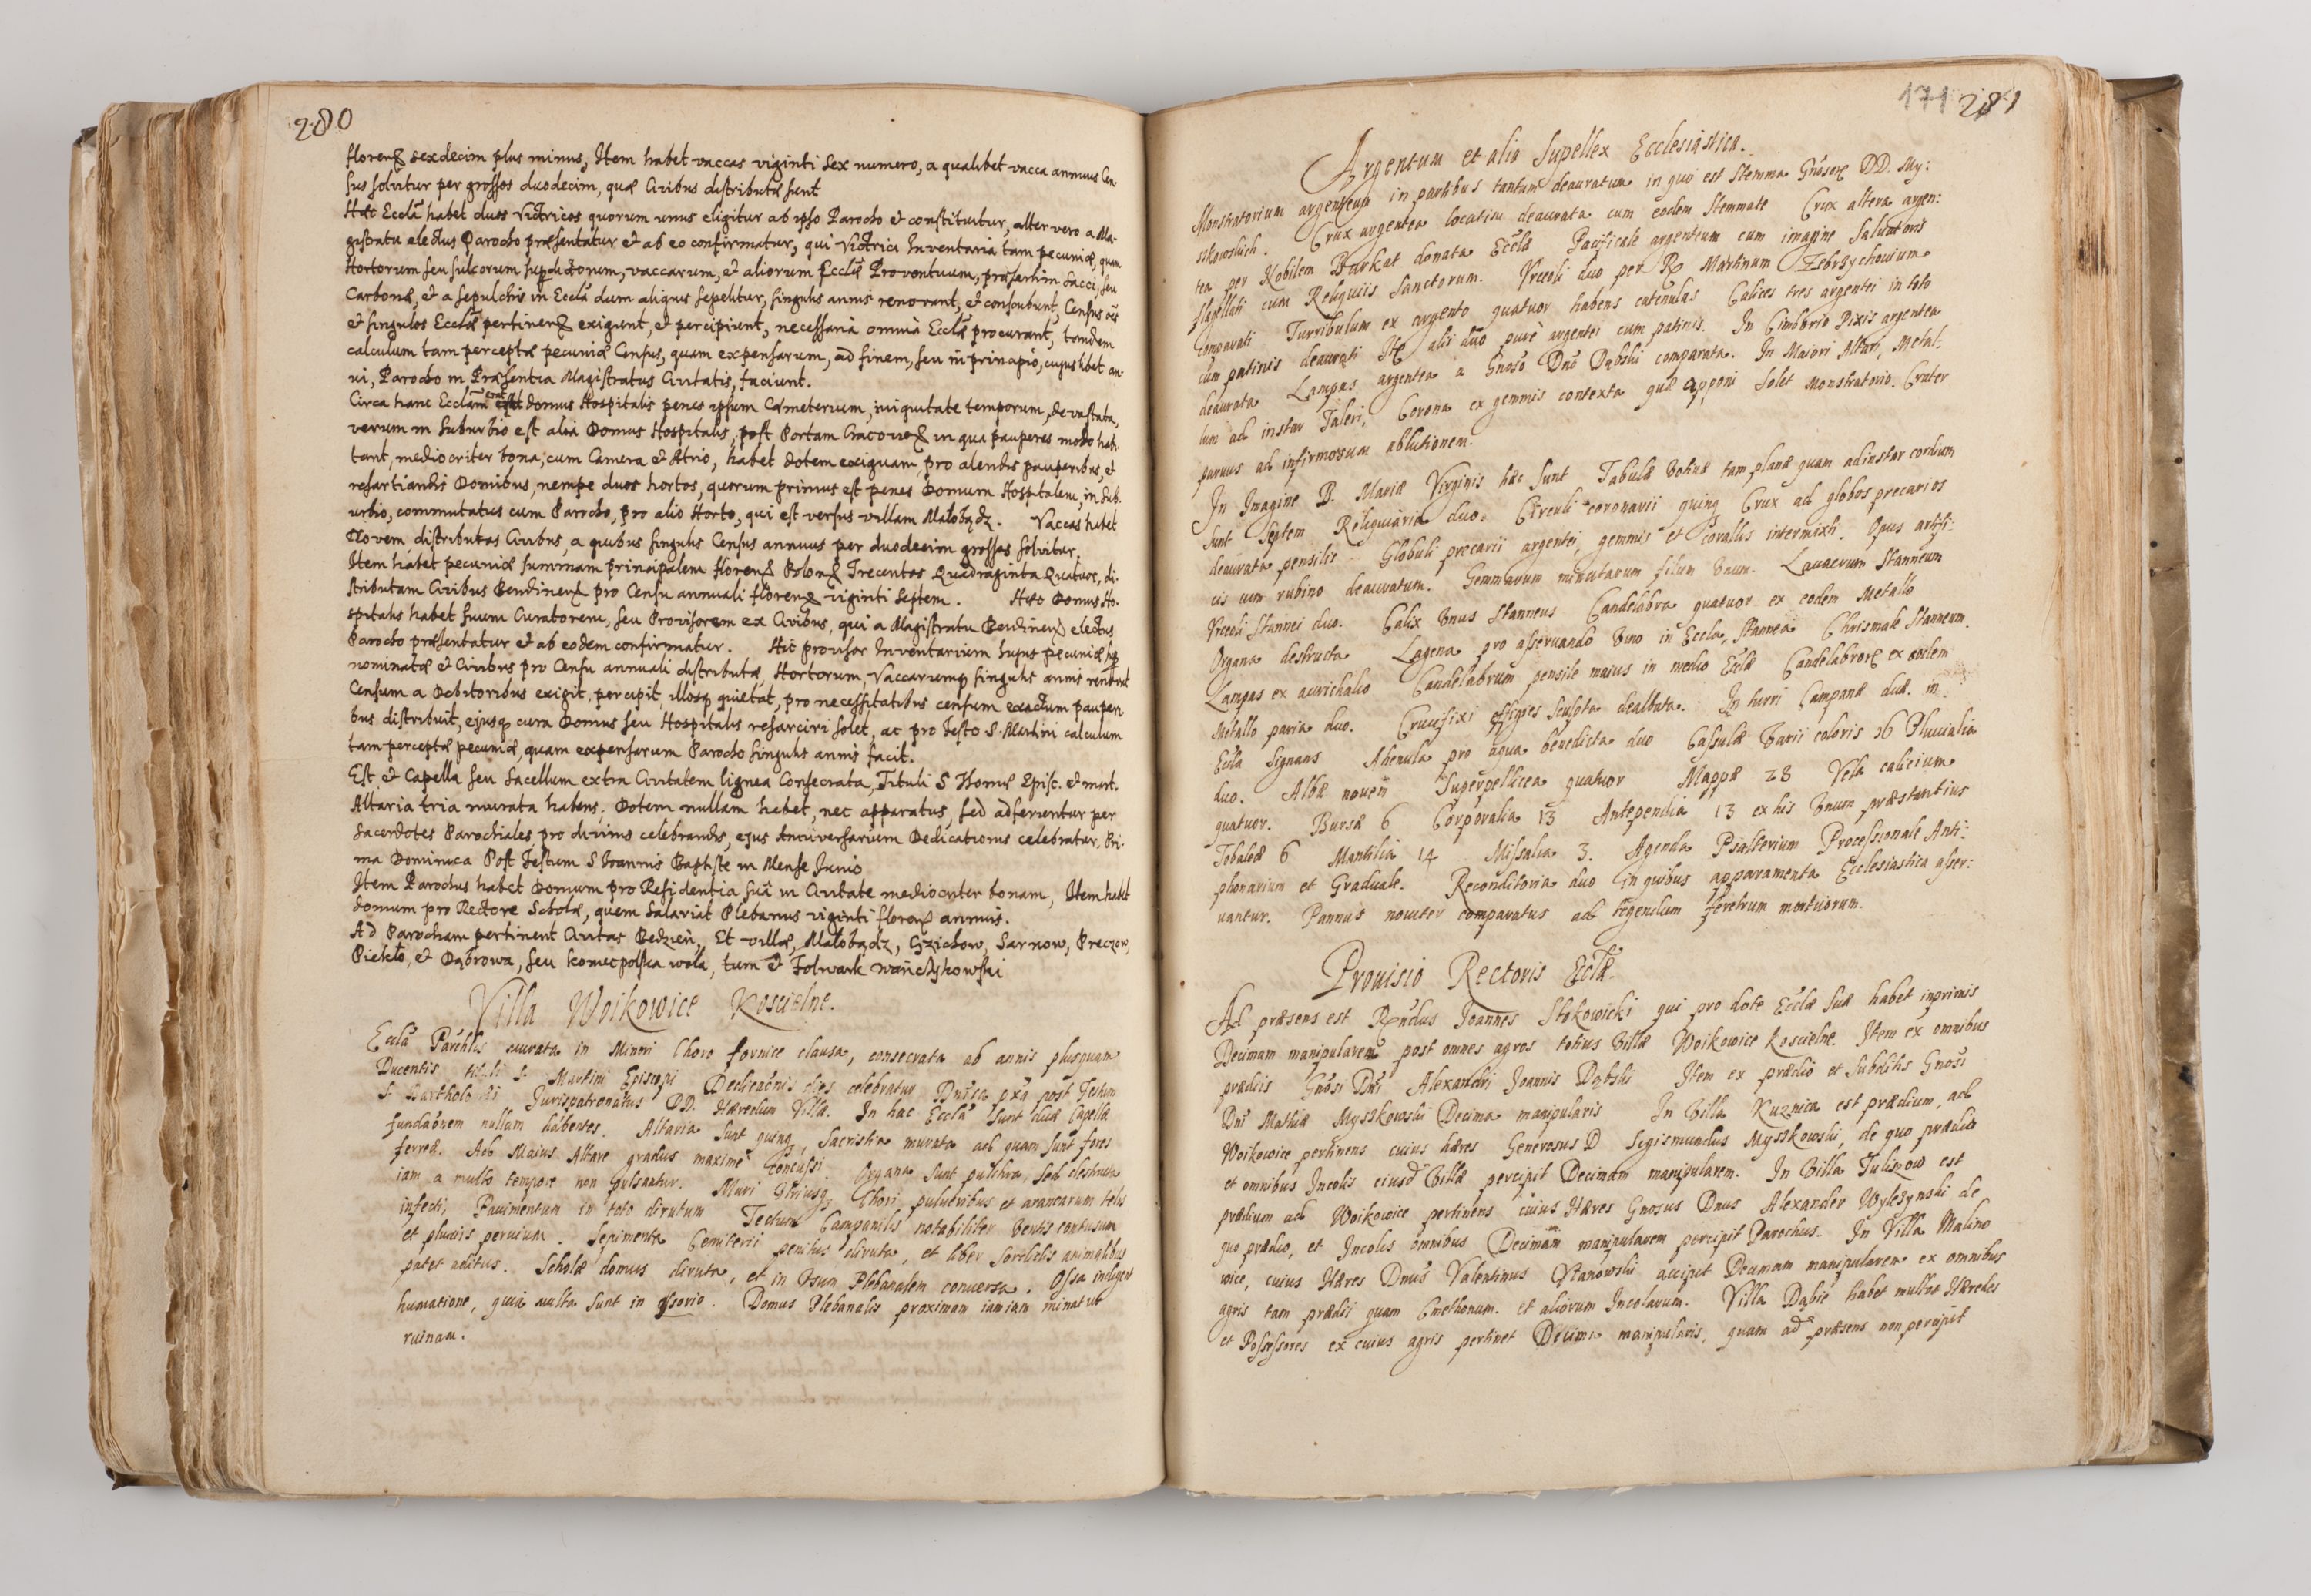 280
floren sexdecim plus minus, Item habet vaccas viginti sex numero, a qualibet vacca annuus Cen
sus solvitur per grossos duodecim, quæ Civibus distributæ sunt
Hæc Eccla habet duos Victricos quorum unus eligitur ab ipso Parocho et constituitur, alter vero a Ma-
gistratu electus Parocho præsentatur et ab eo confirmatur, qui Victrici Inventaria tam pecuniæ, quam
Hortorum seu sulcorum supdictorum, vaccarum, et aliorum Ecclæ Proventuum, præsertim Sacci, seu
Carbonæ, et a sepulchris in Eccla dum aliquis sepelitur, singulis annis renovant, et conscribunt, Census oes
et singulos Ecclæ pertinen exigunt, et percipiunt, necessaria omnia Ecclæ procurant, tandem
calculum tam perceptæ pecuniæ Census, quam expensarum, ad finem, seu in principio, cujuslibet an-
ni, Parocho in Præsentia Magistratus Civitatis, faciunt.
Circa hanc Ecclam erat domus Hospitalis penes ipsum Cæmeterium, iniquitate temporum, devastata,
verum in Suburbio est alia Domus Hospitalis, post Portam Cracovien in qua pauperes modo habi
tant, mediocriter bona, cum Camera et Atrio, habet dotem exiguam, pro alendis pauperibus, et
resartiandis Domibus, nempe duos hortos, quorum primus est penes Domum Hospitalem, in Sub-
urbio, commutatus cum Parocho, pro alio Horto, qui est versus villam Małobądz. Vaccas habet
Novem distributas Civibus, a quibus singulis Census annuus per duodecim grossos solvitur.
Item habet pecuniæ summam principalem floren Polon Trecentos Quadraginta Quatuor, di-
stributam Civibus Bendinen pro Censu annuali floren viginti Septem. Hæc Domus Ho-
spitalis habet suum Curatorem, seu Provisorem ex Civibus, qui a Magistratu Bendinen electus
Parocho præsentatur et ab eodem confirmatur. Hic provisor Inventarium hujus pecuniæ sup
nominatæ et Civibus pro Censu annuali distributæ, Hortorum, Vaccarumq singulis annis renovat
Censum a Debitoribus exigit, percipit, illosq quietat, pro necessitatibus censum exactum pauperi
bus distribuit, ejusq cura Domus seu Hospitalis resarciri solet, ac pro Festo S. Martini calculum
tam perceptæ pecuniæ, quam expensarum Parocho singulis annis facit.
Est et Capella seu Sacellum extra Civitatem lignea Consecrata, Tituli S Thomæ Episc. et mart.
Altaria tria murata habens, Dotem nullam habet, nec apparatus, sed adferuntur per
Sacerdotes Parochiales pro divinis celebrandis, ejus Anniversarium Dedicationis celebratur Pri-
ma Dominica Post Festum S Joannis Baptiste in Mense Junio
Item Parochus habet Domum pro Residentia sua in Civitate mediocriter bonam, Item habet
domum pro Rectore Scholæ, quem Salariat Plebanus viginti floren annuis.
Ad Parochiam pertinent Civitas Bedzień, Et villæ, Małobądz, Gzichow, Sarnow, Preczow,
Piekło, et Dąbrowa, seu Koniecpolska wola, tum et Folwark
Villa Woikowice Koscielne.
Eccla Parchlis murata in Minori Choro fornice clausa, consecrata ab annis plusquam
Ducentis tituli S. Martini Episcopi Dedicaonis dies celebratur Dnica pxa post Festum
S. Bartholomæi Jurispatronatus DD. Hæredum Villæ. In hac Eccla Sunt duæ Capellæ
fundaonem nullam habentes. Altaria Sunt quinq, Sacristia murata ad quam sunt fores
ferreæ. Ad Maius Altare gradus maxime concussi Organa Sunt pulchra, Sed destructa
iam a multo tempore non pulsantur. Muri Utriusq Chori pulveribus et aranearum telis
infecti, Pavimentum in toto dirutum Tectum Campanilis notabiliter Ventis contusum
et pluviis pervium. Sepimenta Cemiterii penitus diruta, et liber Sordidis animalibus
patet aditus. Scholæ domus diruta, et in Usum Plebanalem conversa. Ossa indigent
humatione, quia multa Sunt in ossorio. Domus Plebanalis proximam iamiam minatur
ruinam.
171 281
Argentum et alia Supellex Ecclesiastica.
Monstratorium argenteum in partibus tantum deauratum in quo est Stemma Gnosorum DD. My:
szkowskich. Crux argentea locatim deaurata cum eodem Stemmate Crux altera argen:
tea per Nobilem Burkat donata Ecclæ Pacificale argenteum cum imagine Salvatoris
flagellati cum Reliquiis Sanctorum. Urceoli duo per R Martinum Zebrzychovium
comparati Turribulum ex argento quatuor habens catenulas Calices tres argentei in toto
cum patinis deaurati It alii duo pure argentei cum patinis. In Cimborio Pixis argentea
deaurata Lampas argentea a Gnoso Dno Dąbski comparata. In Maiori Altari, Metal:
lum ad instar Taleri, Corona ex gemmis contexta quæ apponi Solet Monstratorio. Crater
parvus ad infirmorum ablutionem.
In Imagine B. Mariæ Virginis hæc Sunt Tabulæ Votivæ tam planæ quam adinstar cordium
Sunt Septem Reliquiaria duo. Circuli coronarii quinq Crux ad globos precarios
deaurata pensilis Globuli precarii argentei, gemmis et Corallis intermixti. Opus artifi:
cis cum rubino deauratum. Gemmarum minutarum filum Vnum. Lavacrum Stanneum
Urceoli Stannei duo. Calix Vnus Stanneus Candelabra quatuor ex eodem Metallo
Organa destructa Lagena pro asservando Vino in Eccla, Stannea Chrismale Stanneum.
Lampas ex aurichalco Candelabrum pensile maius in medio Ecclæ Candelabror ex eodem
Metallo paria duo. Crucifixi effigies Sculpta dealbata. In turri Campanæ duæ. in
Eccla Signans Ahenula pro aqua benedicta duo Casulæ Varii coloris 16 Pluvialia
duo. Albæ novem Superpellicea quatuor Mappæ 28 Vela calicium
quatuor. Bursæ 6 Corporalia 13 Antependia 13 ex his Vnum præstantius
Tobaleæ 6 Mantilia 14 Missalia 3. Agenda Psalterium Processionale Anti:
phonarium et Graduale. Reconditoria duo in quibus apparamenta Ecclesiastica asser:
vantur. Pannus noviter comparatus ad tegendum feretrum mortuorum.
Provisio Rectoris Ecclæ.
Ad præsens est Rndus Joannes Stokowicki qui pro dote Ecclæ Suæ habet inprimis
Decimam manipularem post omnes agros totius Villæ Woikowice Koscielne. Item ex omnibus
prædiis Gnosi Dni Alexandri Joannis Dąbski Item ex prædio et Subditis Gnosi
Dni Mathiæ Myszkowski Decima manipularis In Villa Kuznica est prædium, ad
Woikowice pertinens cuius hæres Generosus D Segismundus Myszkowski, de quo prædio
et omnibus Incolis eiusd Villæ percipit Decimam manipularem. In Villa Tuliszow est
prædium ad Woikowice pertinens cuius Hæres Gnosus Dnus Alexander Wyleżynski de
quo prædio, et Incolis omnibus Decimam manipularem percipit Parochus. In Villa Malino
wice, cuius Hæres Dnus Valentinus Ostanowski accipit Decimam manipularem ex omnibus
agris tam prædii quam Cmethonum. et aliorum Incolarum. Villa Dąbie habet multos Hæredes
et Possessores ex cuius agris pertinet Decima manipularis, quam ad præsens non percipit